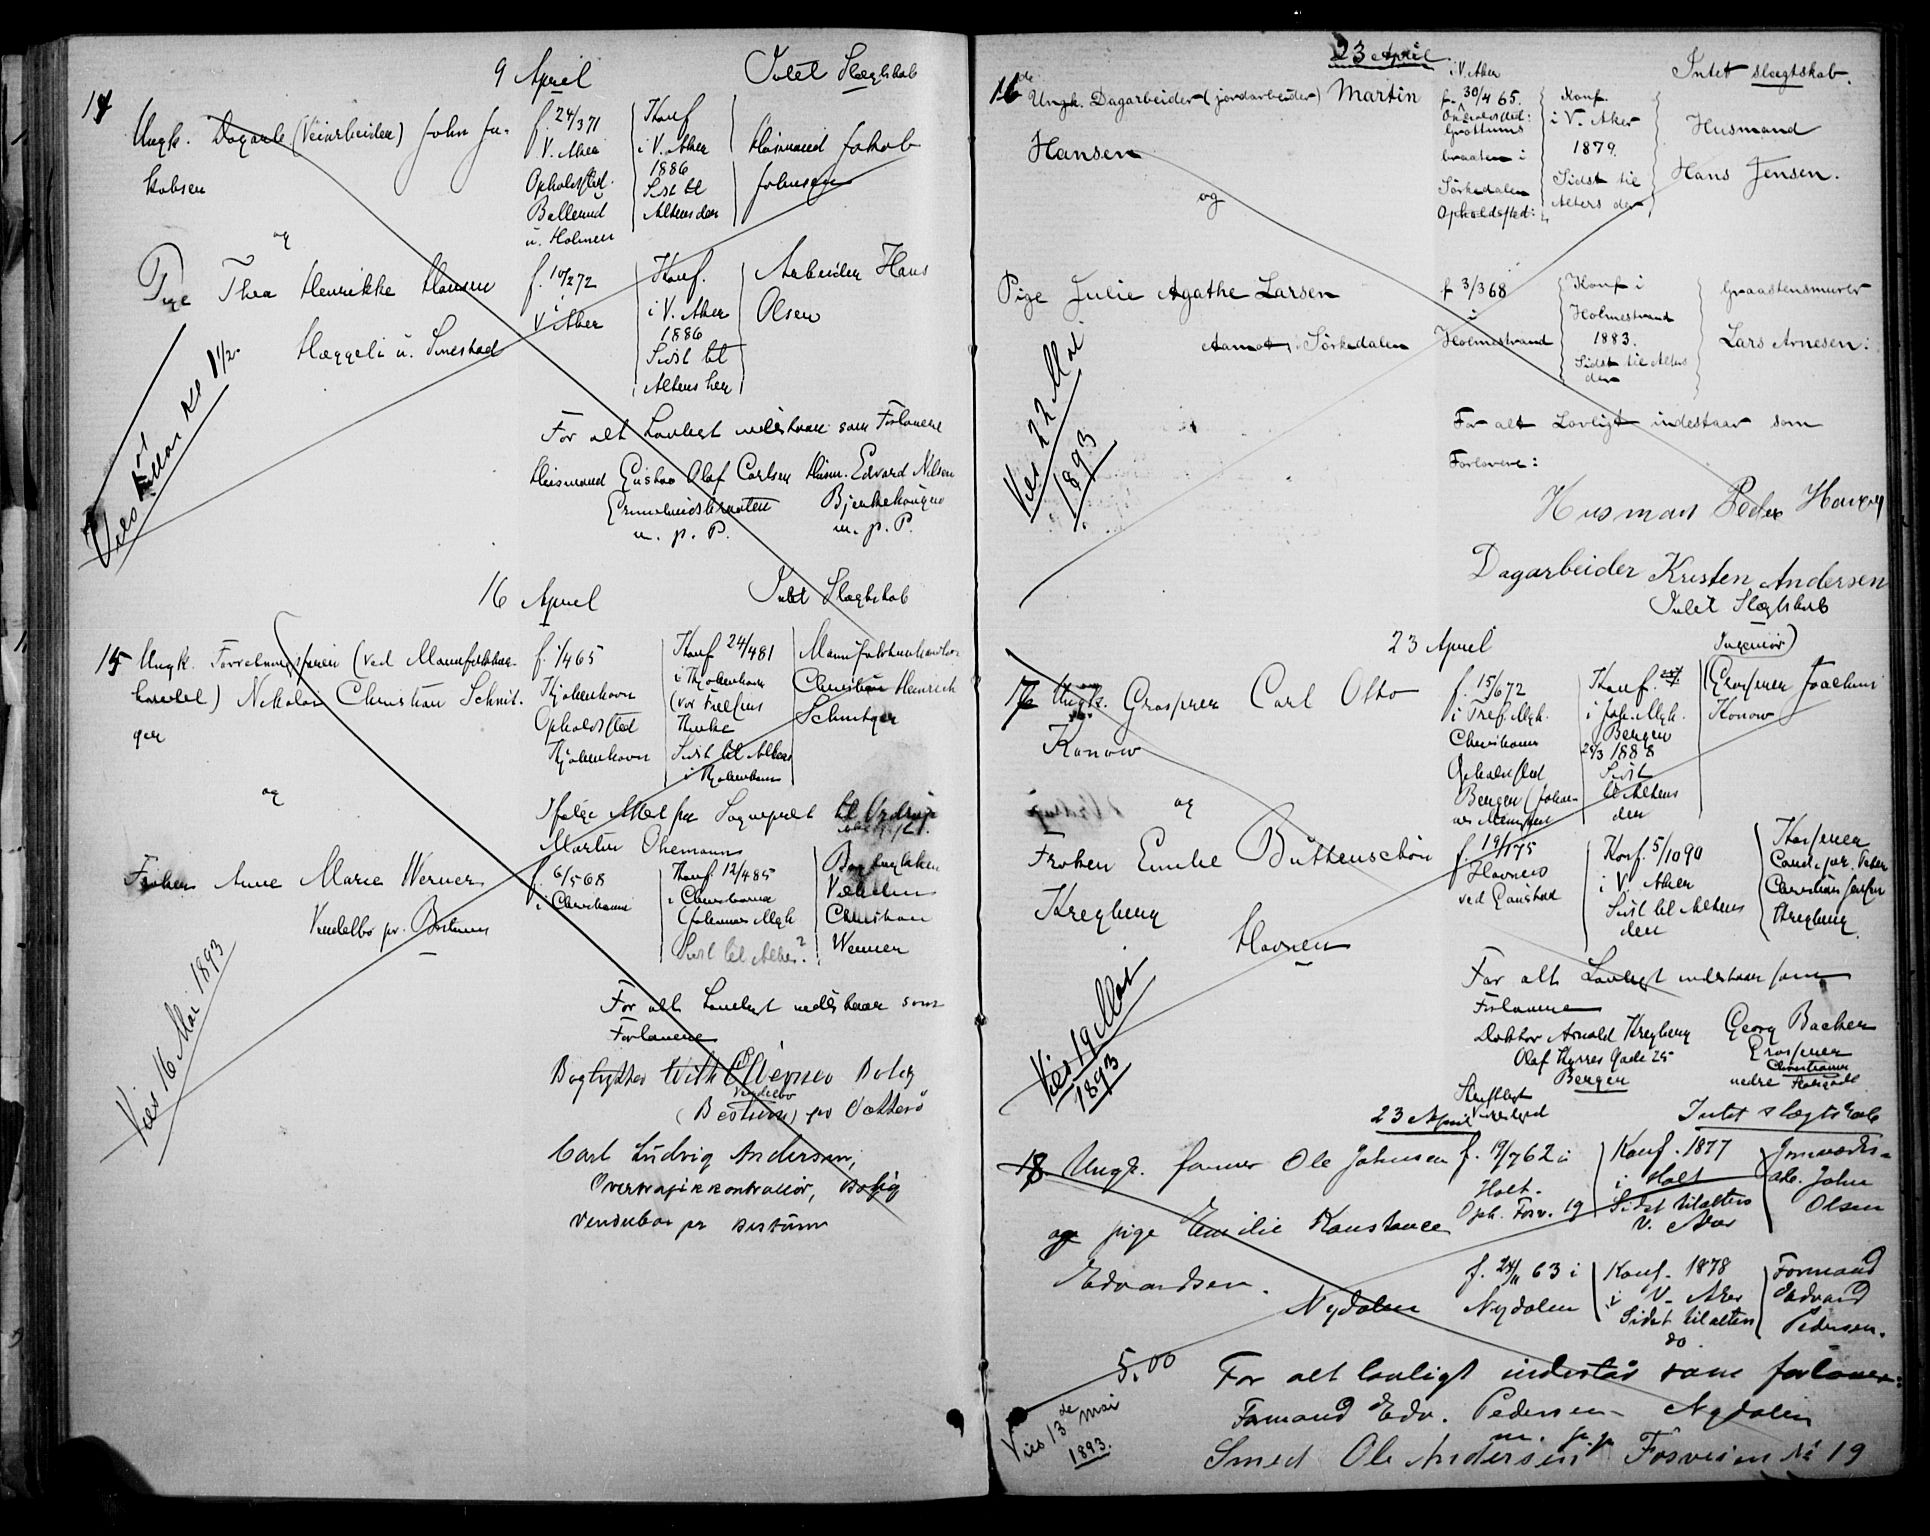 9 April Intet Slægtskab
14
Ungk. Dagarb (Veiarbeider) John Ja-
kobsen
f. 24/3 71
V. Aker
Opholdssted.
Ballerud
u. Holmen
Konf
i V. Aker
1886
Sidst til
Alters der
Husmand Jakob
Johnsen
og
Pige Thea Henrikke Hansen
Hæggeli u. Smestad
f. 10/2 72
i
V. Aker
Konf.
i V. Aker
1886
Sidst til
Alters her
Arbeider Hans
Olsen
Kl 1 1/2
For alt Lovligt indestaar som Forlovere
Husmand Gustav Olaf Carlsen Husm. Edvard Nilsen
m. p. P. m. p. P.
16 April Intet Slægtskab
15 Ungk. Forretningsfører (ved Manufaktur-
handel) Nikolai Christian Schnit-
ger
f. 1/4 65
Kjøbenhavn
Opholdssted
Kjøbenhavn
Konf 24/4 81
i Kjøbenhavn
(Vor Frelsers
Kirke
Sidst til Alters
i Kjøbenhavn
Manufakturhandler
Christian Heinrich
Schnitger
og
Ifølge Attest fra Sognepræst til Ordrup
Martin Ohemann
Frøken Anne Marie Werner
Vendelbo pr. Bestum
f. 6/5 68
i Christiania
Konf. 12/4 85
i Christiania
(Johannes Mgh
Sidst til Alters?
Bogtrykker
Vilhelm
Christian
Werner
Vies 16 Mai 1893
For alt Lovligt indestaar som
Forlovere
Bogtrykker Wilh C Werner Bolig
Vendelbo
(Bestum) pr Vækkerø
Carl Ludvig Andersen,
Overtrafikkontrollør, Bolig
Vendelboe pr Bestum
23 April
16de Ungk. Dagarbeider (jordarbeider) Martin
Hansen
i V. Aker
f. 30/4 65.
Opholdssted:
Grøttums
braaten i
Sørkedalen
Opholdssted:
Konf.
i V. Aker
1879.
Sidst til
Alters der
Intet slægtskab.
Husmand
Hans Jensen.
og
Pige Julie Agathe Larsen
Aamot i Sørkedalen
f 3/3 68
i
Holmestrand
Konf i
Holmestrand
1883.
Sidst til Alters
der
Graastensmurer
Lars Arnesen:
Vies 22 Mai
1893
For alt Lovligt indestaar som
Forlovere:
Husman Peder Hansen
Dagarbeider Kristen Andersen
Intet Slægtskab
23 April
17 Ungk. Grosserer Carl Otto
Konow
f. 15/6 72
i Tref. Mgh.
Christiania
Opholdssted
Bergen (Johan-
nes Menighed
Konf.
i Joh. Mgh.
Bergen
1888
Sidst
til Alters
der
Ingeniør)
(Grosserer Joachim
Konow
og
Frøken Emilie Büttenschøn
Kregberg
Havnen
f. 19/1 75
Havnen
ved Gaustad
Konf. 5/10 90
i V. Aker
Sidst til Alters
der
Cand. jur. Peter
Christian Jensen
Kregberg.
Vies 19 Mai
1893
For alt Lovligt indestaar som
Forlovere
Doktor Arnold Kregberg
Olaf Kyrres Gade 25
Bergen
Georg Backer
Grosserer
Christiania
nedre
Skriftligt
23 April Intet slægtskab
18 Ungk. former Ole Johnsen
f. 19/7 62 i
Holt.
Oph. Fosv. 19
Konf. 1877
i Holt
Sidst til alters
V. Aker
Jernværks-
arb. John
Olsen
og pige Emilie Konstance
Edvardsen.
Nydalen
f. 24/11 63 i
Nydalen
Konf. 1878
i V. Aker
Sidst til alters
do.
Formand
Edvard
Pedersen.
5.00
Vies 13de mai
1893.
For alt lovligt indestår som forlovere:
Formand Edv. Pedersen Nydalen
m. p. p.
Smed Ole Andersen Fosveien No 19